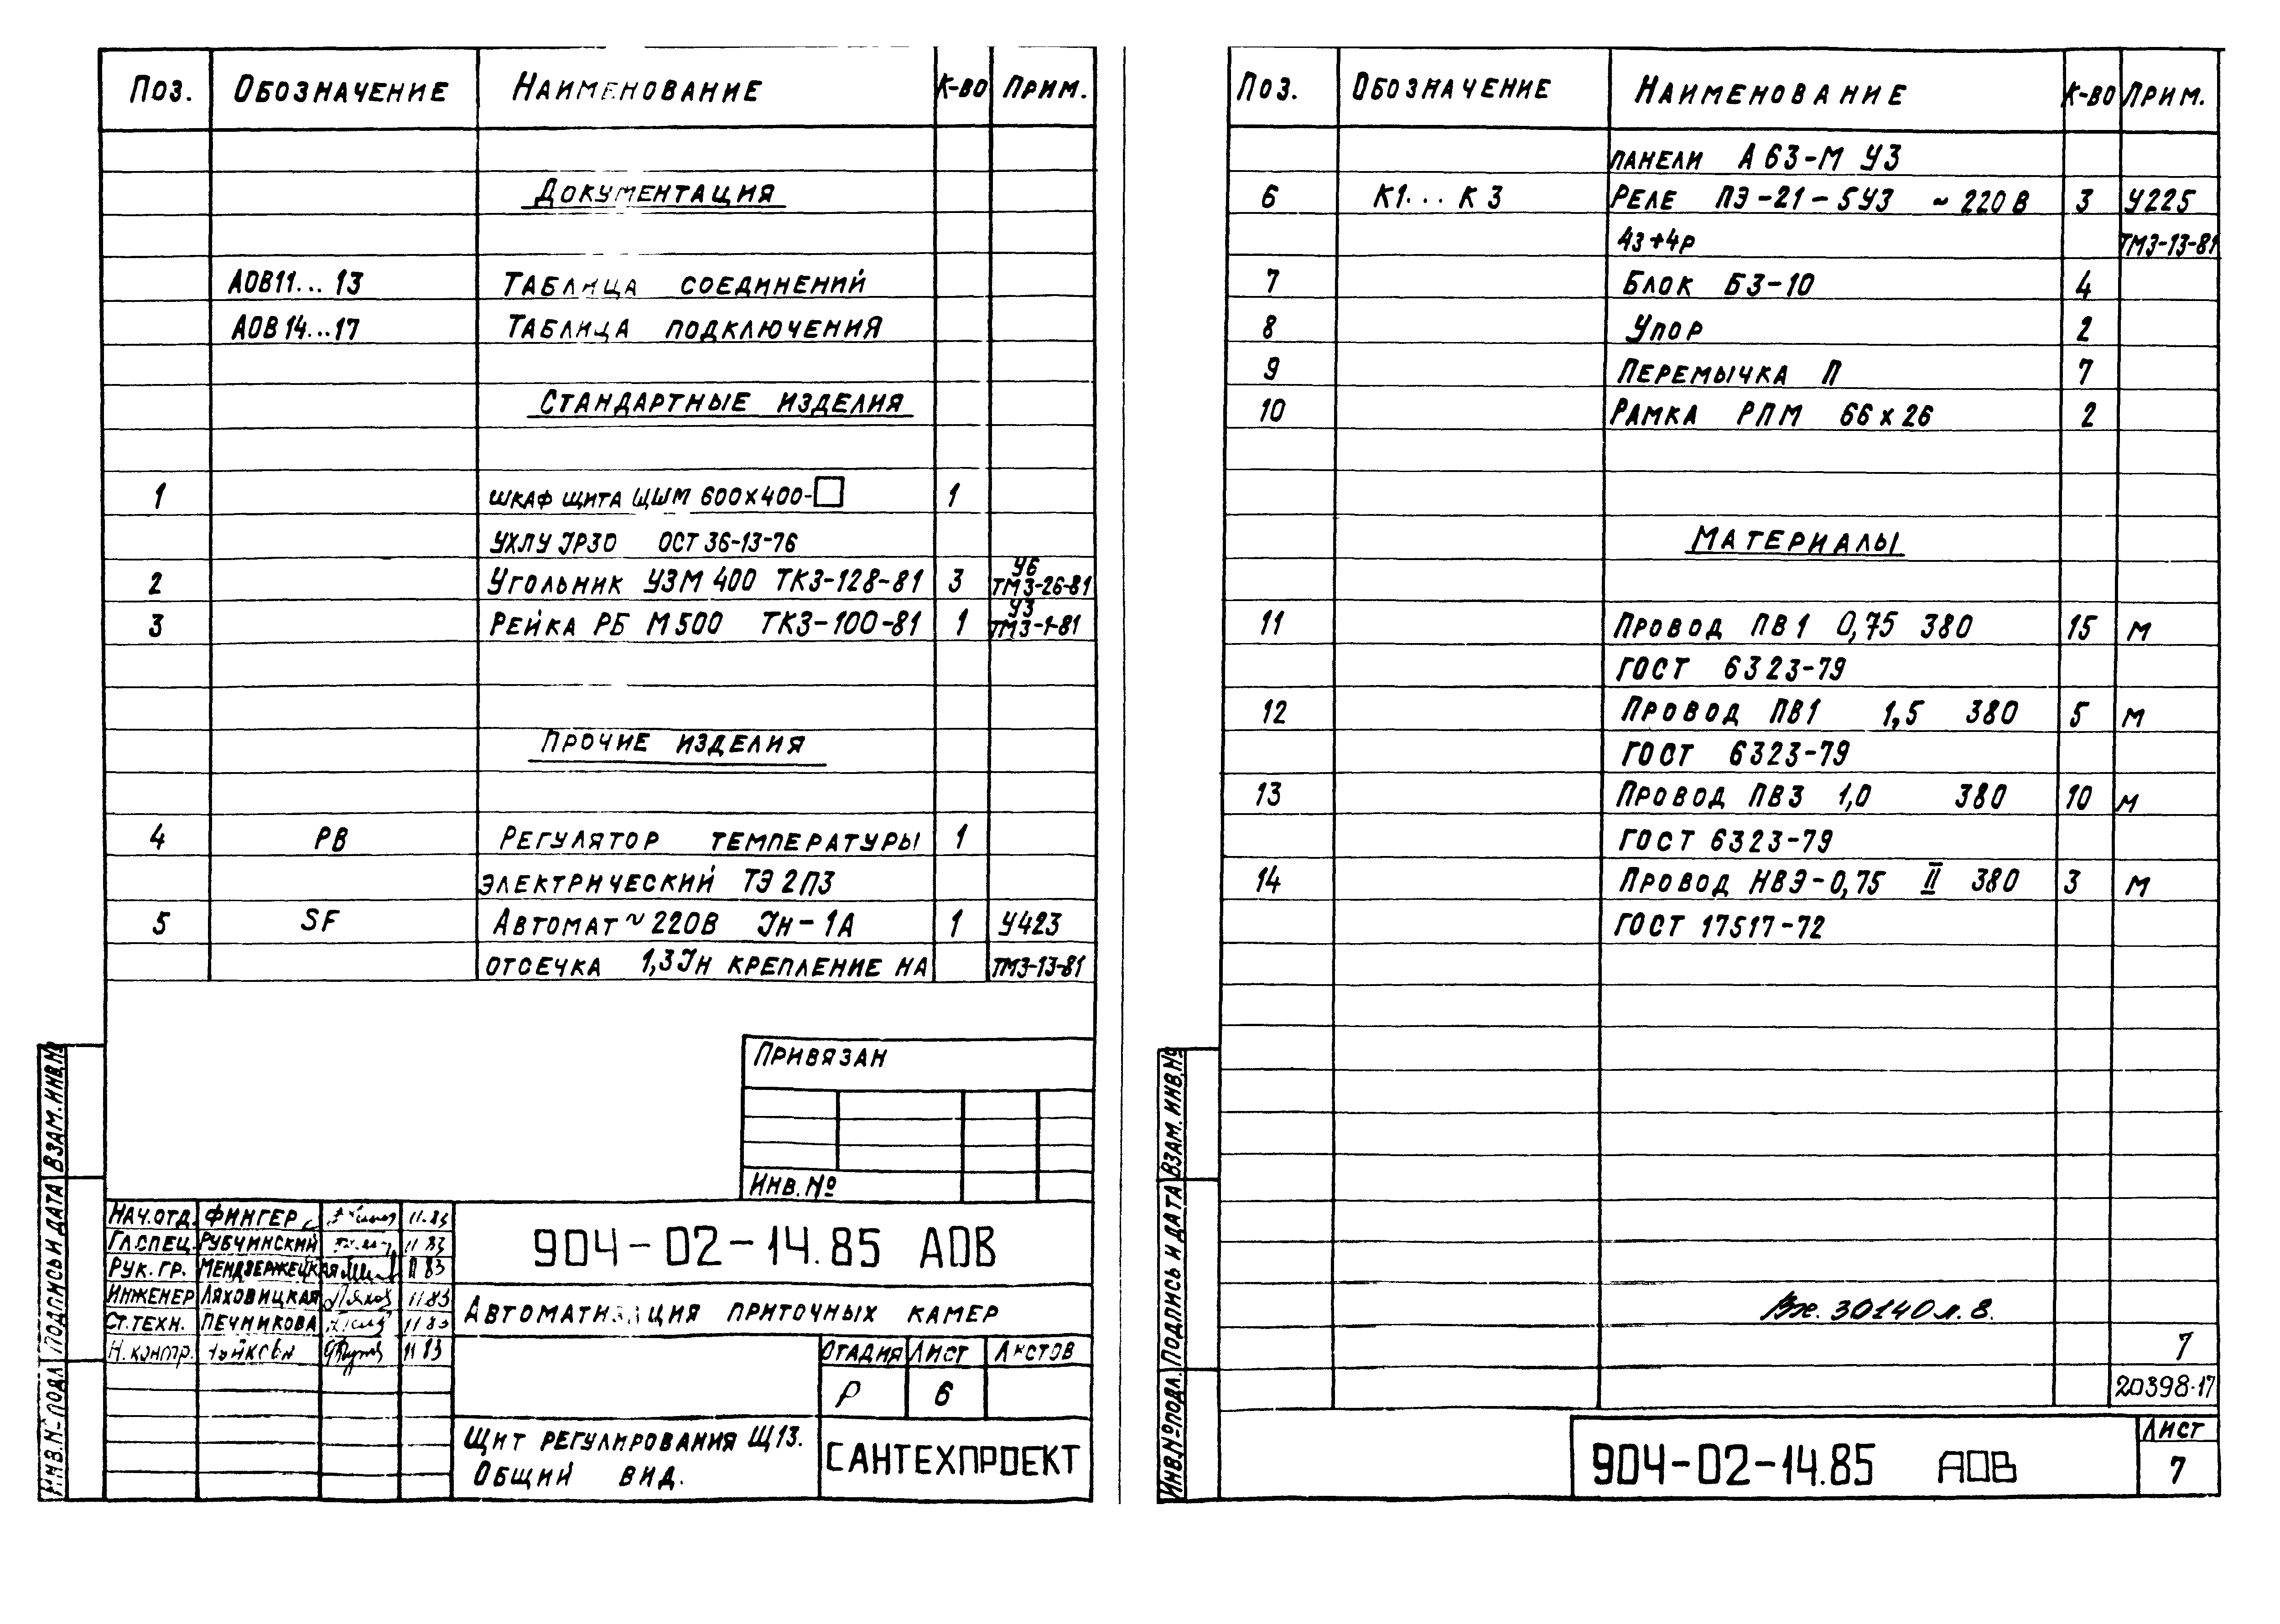 Поз. Обозначение Наименование К-во Прим.
Документация
АОВ11...13 Таблица соединений
АОВ14...17 Таблица подключения
Стандартные изделия
1 шкаф щита ЩШМ 600х400-□ 1
УХЛУ JP30 ОСТ 36-13-76
У6
2 Угольник УЗМ 400 ТК3-128-81 3 ТМ3-26-81
У3
3 Рейка РБ М500 ТК3-100-81 1 ТМ3-1-81
Прочие изделия
4 РВ Регулятор температуры 1
электрический ТЭ2П3
5 SF Автомат ~220В Jн-1А 1 У423
отсечка 1,3Jн крепление на ТМ3-13-81
Привязан
Инв.№
Нач.отд. Фингер 11.83
Гл.спец. Рубчинский 11 83
Рук. гр. Мендзержецкая 11 83
Инженер Ляховицкая 11.83
Ст.техн. Печникова 11 83
Н.контр. 11 83
904-02-14.85 АОВ
Автоматизация приточных камер
Стадия Лист Листов
Р 6
Щит регулирования Щ13.
Общий вид.
САНТЕХПРОЕКТ
Взам. инв.№
Подпись и дата
Инв.№ подл.
Поз. Обозначение Наименование К-во Прим.
панели А63-М У3
6 К1...К3 Реле ПЭ-21-5У3 ~220В 3 У225
4з+4р ТМ3-13-81
7 Блок БЗ-10 4
8 Упор 2
9 Перемычка П 7
10 Рамка РПМ 66х26 2
Материалы
11 Провод ПВ1 0,75 380 15 м
ГОСТ 6323-79
12 Провод ПВ1 1,5 380 5 м
ГОСТ 6323-79
13 Провод ПВ3 1,0 380 10 м
ГОСТ 6323-79
14 Провод НВЭ-0,75 II 380 3 м
ГОСТ 17517-72
30140 л. 8.
7
20398-17
904-02-14.85 АОВ
Лист
7
Взам. инв.№
Подпись и дата
Инв.№ подл.